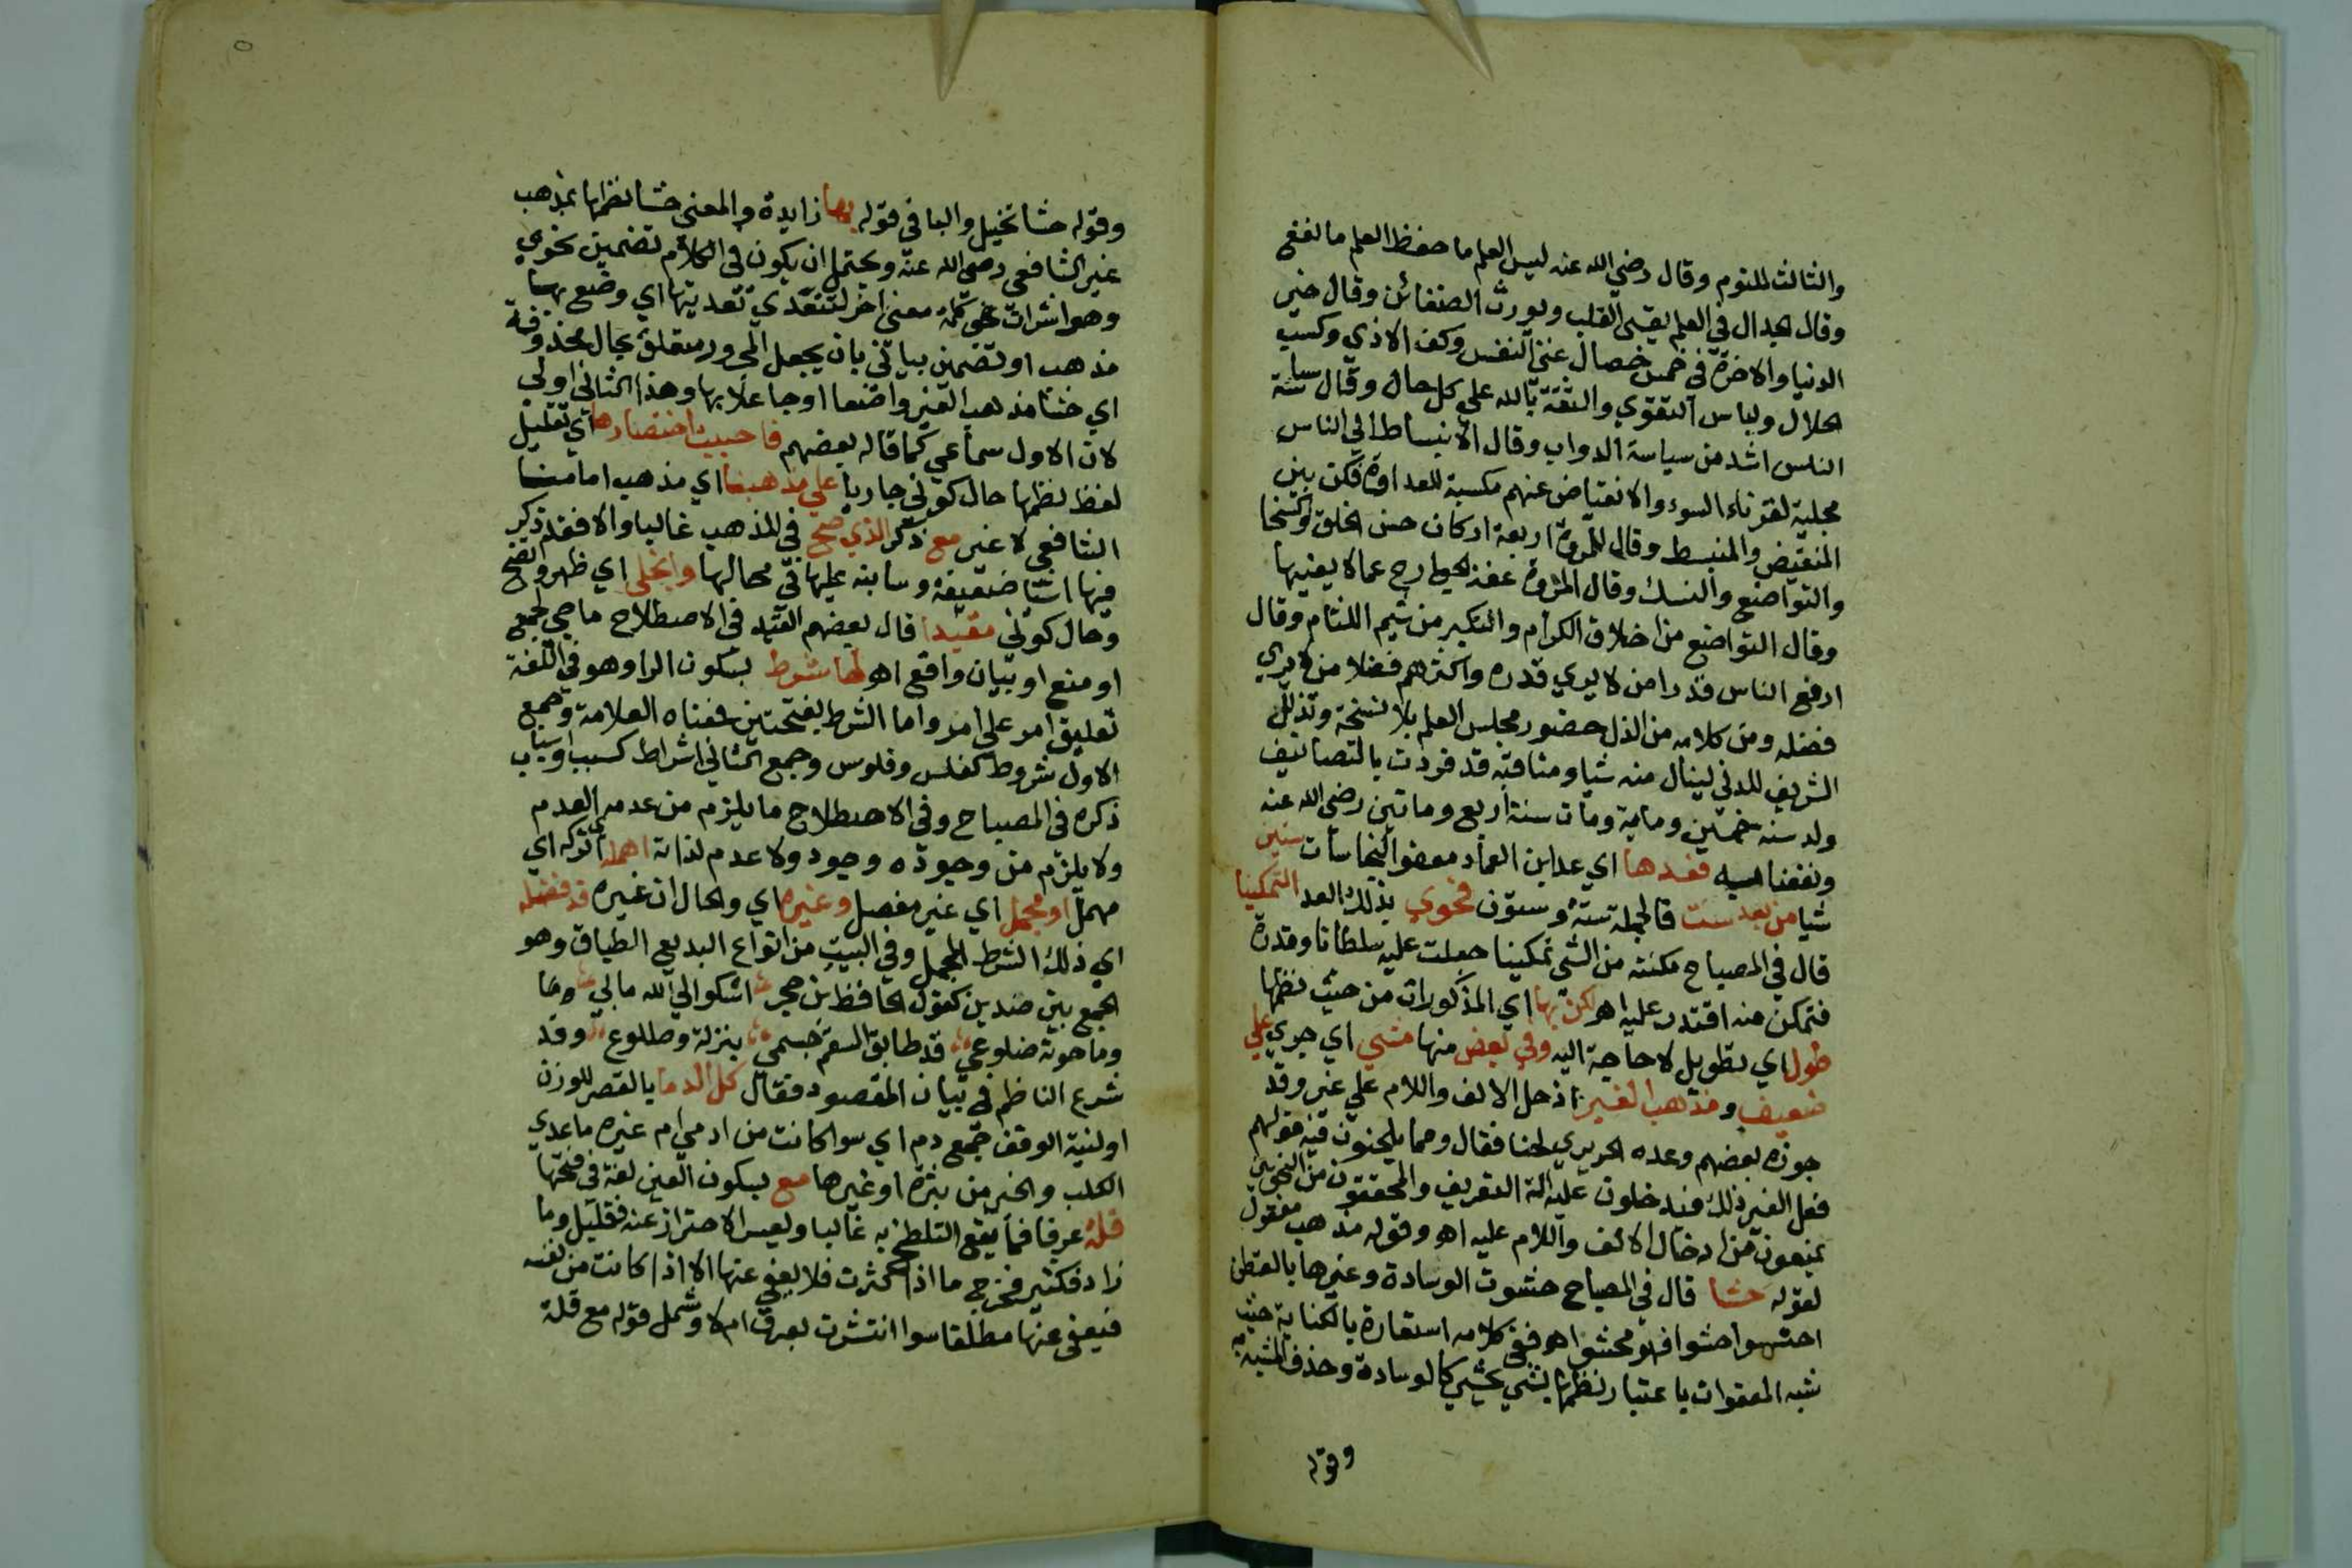 والثالث للنوم وقال رضي الله عنه ليس العلم ما حفظ العلم ما نفع
وقال الجدال في العلم يقسي القلب ويورث الضغائن وقال خير
الدنيا والاخرة في خمس خصال غني النفس وكف الاذي وكسب
الحلال ولباس التقوي والثقة بالله علي كل حال وقال سياسة
الناس اشد من سياسة الدواب وقال الانبساط الي الناس
مجلبة لقرناء السوء والانقباض عنهم مكسبة للعداوة فكن بين
المنقبض والمنبسط وقال للمروة اربعة اركان حسن الخلق والسخا
والتواضع والنسك وقال المروة عفة الجوارح عما لا يعنيها
وقال التواضع من اخلاق الكرام والتكبر من شيم اللئام وقال
ارفع الناس قدرا من لا يري قدره واكثرهم فضلا من لا يري
فضله ومن كلامه من الذل حضور مجلس العلم بلا نسخة وتذلل
الشريف للدني لينال منه شيا ومناقبه قد فردت بالتصانيف
ولد سنه خمسين وماية ومات سنة اربع وماتين رضي الله عنه
ونفعنا به فعدها اي عد ابن العماد معفو النجاسات ستين
شيا من بعد ست فالجملة ستة وستون فحوي بذلك العد التمكينا
قال في المصباح مكنته من الشي تمكينا جعلت عليه سلطانا وقدرة
فتمكن منه اقتدر عليه اهـ لكن بها اي المذكورات من حيث نظمها
طول اي تطويل لا حاجة اليه وفي بعض منها مشي اي جري علي
ضعيف ومذهب الغير اذ حل الالف واللام علي غير وقد
جوزه بعضهم وعده الحريري لحنا فقال ومما يلحنون فيه قولهم
فعل الغير ذلك فيدخلون عليه الة التعريف والمحققون من النحويين
يمنعون من ادخال الالف واللام عليه اهـ وقوله مذهب مفعول
لقوله حشا قال في المصباح حشوت الوسادة وغيرها بالقطن
احشوا حشوا فهو محشو اهـ ففي كلامه استعارة بالكناية حيث
شبه المعفوات باعتبار نظمها بشي يحشي كالوسادة وحذف المشبه به
وقوله
وقوله حشا تخييل والبا في قوله بها زايدة والمعني حشا نظمها بمذهب
غير الشافعي رضي الله عنه ويحتمل ان يكون في الكلام تضمين نحوي
وهو اشراب كلمة معني اخر لتتعدي تعديتها اي وضع بها
مذهب او تضمين بياني بان يجعل المجرور متعلق بحال محذوفة
اي حشا مذهب الغير واضعا او جاعلا بها وهذا الثاني اولي
لان الاول سماعي كما قاله بعضهم فاحببت اختصارها اي تقليل
لفظ نظمها حال كوني جاريا علي مذهبنا اي مذهب امامنا
الشافعي لا غير مع ذكر الذي صح في المذهب غالبا والا فقد ذكر
فيها اشيا ضعيفة وسانبه عليها في محالها وانجلي اي ظهر واتضح
وحال كوني مقيدا قال بعضهم القيد في الاصطلاح ما جي لجمع
او منع او بيان واقع اهـ لها شرط بسكون الرا وهو في اللغة
تعليق امر علي امر واما الشرط بفتحتين فمعناه العلامة وجمع
الاول شروط كفلس وفلوس وجمع الثاني اشراط كسبب واسباب
ذكره في المصباح وفي الاصطلاح ما يلزم من عدمه العدم
ولا يلزم من وجوده وجود ولا عدم لذاته اهمله اي تركه اي
مهمل او مجمل اي غير مفصل وغيره اي والحال ان غيره قد فصله
اي ذلك الشرط المجمل وفي البيت من انواع البديع الطباق وهو
الجمع بين ضدين كقول الحافظ بن حجر اشكو الي الله ما بي وما
وما حوته ضلوعي قد طابق السقم جسمي بنزلة وطلوع وقد
شرع الناظم في بيان المقصود فقال كل الدما بالقصر للوزن
او لنية الوقف جمع دم اي سوا كانت من ادمي ام غيره ما عدي
الكلب والخنزير من بثرة او غيرها مع بسكون العين لغة في فتحها
قلة عرفا فما يقع التلطخ به غالبا ويعسر الاحتراز عنه فقليل وما
زاد فكثير فخرج ما اذا كثرت فلا يعفي عنها الا اذا كانت من نفسه
فيعفي عنها مطلقا سوا انتشرت بعرق ام لا وشمل قوله مع قلة